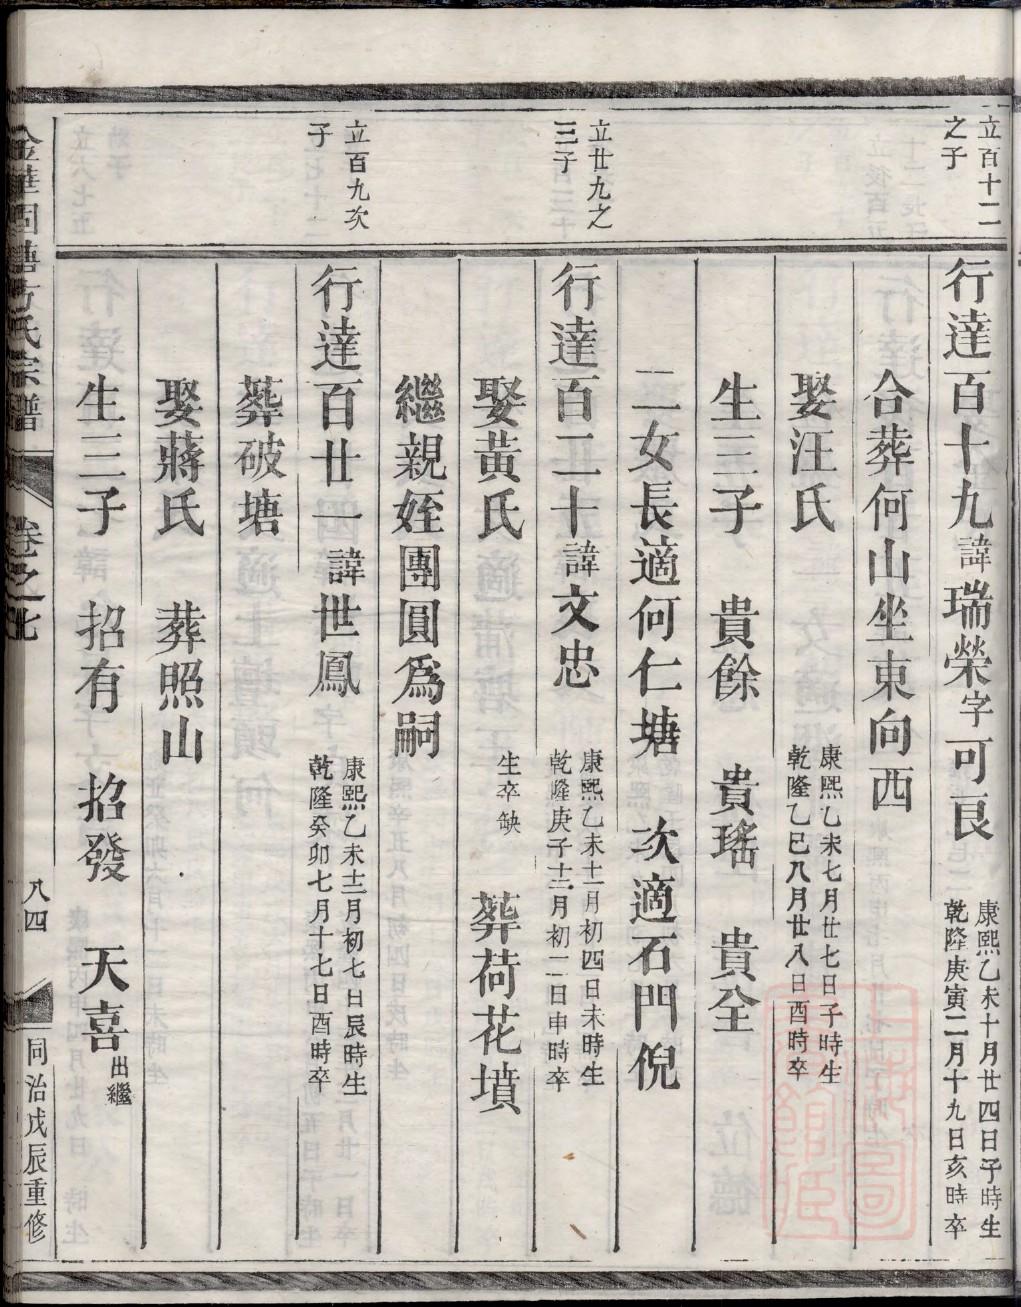 立百十二
之子
行達百十九諱瑞榮字可良
康熙乙未十月廿四日子時生
乾隆庚寅二月十九日亥時卒
合葬何山坐東向西
娶汪氏
康熙乙未七月廿七日子時生
乾隆乙巳八月廿八日酉時卒
生三子 貴餘 貴瑤 貴全
二女長適何仁塘 次適石門倪
立廿九之
三子
行達百二十諱文忠
康熙乙未十二月初四日未時生
乾隆庚子十二月初二日申時卒
娶黃氏
生卒缺
葬荷花墳
繼親姪團圓爲嗣
立百九次
子
行達百廿一諱世鳳
康熙乙未十二月初七日辰時生
乾隆癸卯七月十七日酉時卒
葬破塘
娶蔣氏 葬照山
生三子 招有 招發 天喜出繼
金華固塘方氏宗譜 卷之七 八四 同治戊辰重修